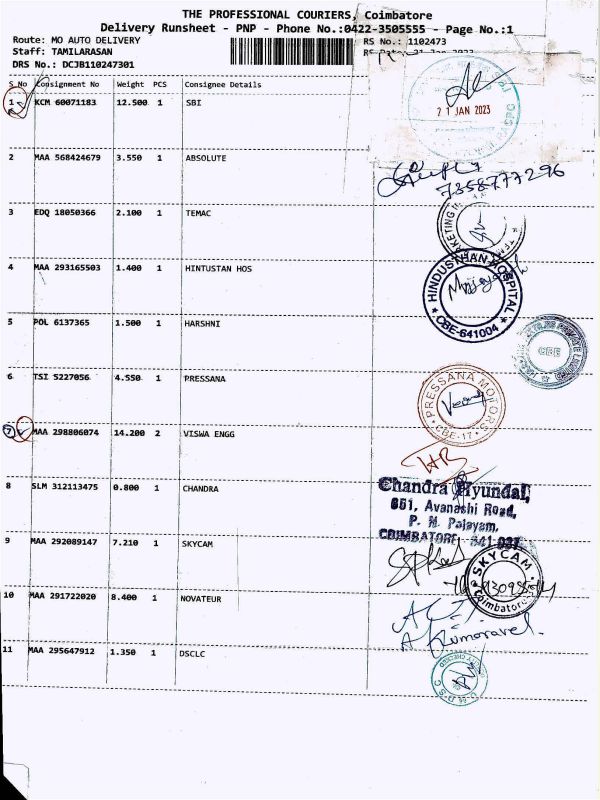 THE PROFESSIONAL COURIERS, Coimbatore
Delivery Runsheet - PNP - Phone No.:0422-3505555 - Page No.:1
Route: MO AUTO DELIVERY
RS No.: 1102473
Staff: TAMILARASAN
DRS No.: DCJB110247301
S No Consignment No Weight PCS Consignee Details
1 KCM 60071183 12.500 1 SBI
21 JAN 2023
2 MAA 568424679 3.550 1 ABSOLUTE
7358777296
3 EDQ 18050366 2.100 1 TEMAC
4 MAA 293165503 1.400 1 HINTUSTAN HOS
HINDUSTHAN HOSPITAL
CBE-641004
5 POL 6137365 1.500 1 HARSHNI
CBE
6 TSI 5227056 4.550 1 PRESSANA
PRESSANA MOTORS
CBE-17
7 MAA 298806074 14.200 2 VISWA ENGG
8 SLM 312113475 0.800 1 CHANDRA
Chandra Hyundai,
651, Avanashi Road,
P. N. Palayam,
COIMBATORE - 641 037
9 MAA 292089147 7.210 1 SKYCAM
SKYCAM
Coimbatore
10 MAA 291722020 8.400 1 NOVATEUR
A Kumaravel.
11 MAA 295647912 1.350 1 DSCLC